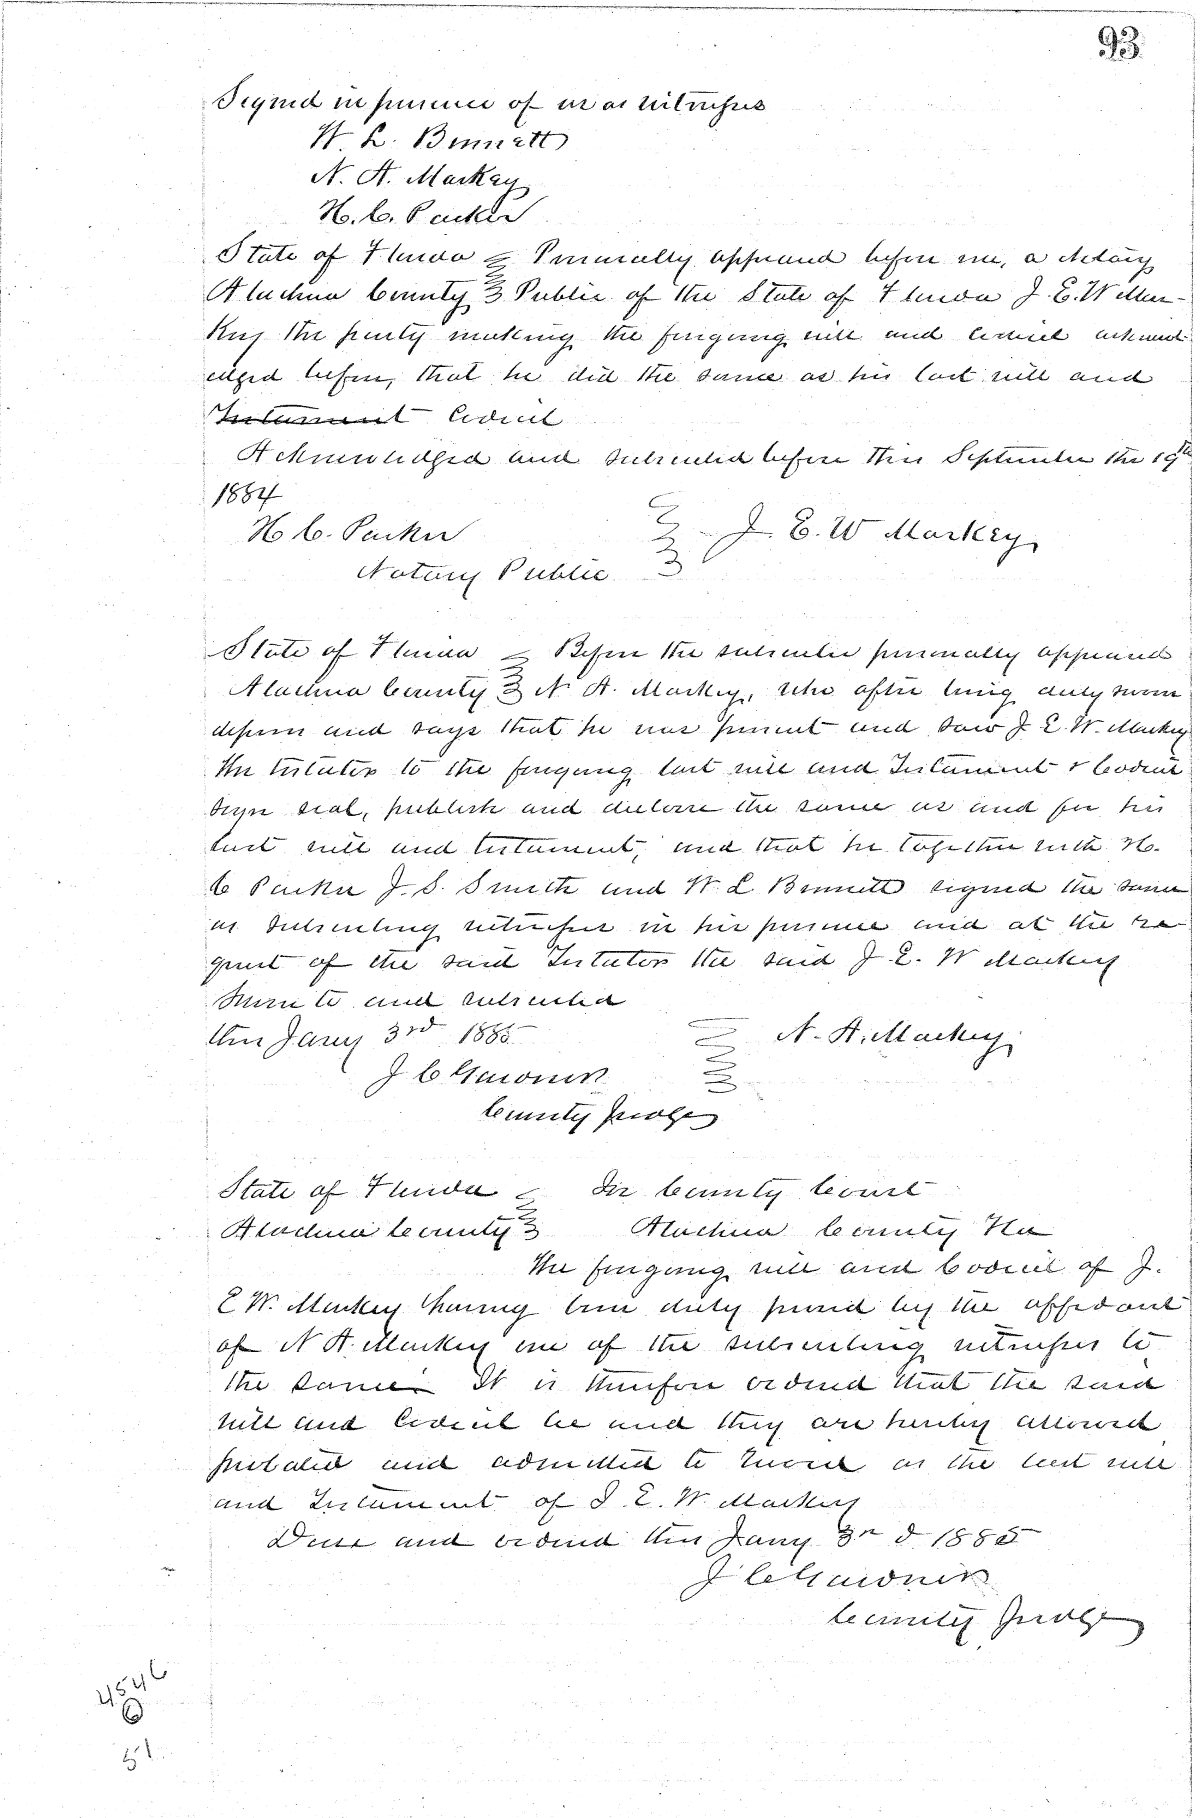 93
Signed in presence of us as witnesses
W. L. Bennett
N. A. Markey
H. C. Parker
State of Florida } Personally appeared before me, a Notary
Alachua County } Public of the State of Florida J. E. W Mar-
key the party making the foregoing will and codicil acknowl
edged before, that he did the same as his last will and
Testament Codicil
Acknowledged and subscribed before this September the 19th
1884
H C. Parker } J. E. W Markey
Notary Public }
State of Florida } Before the subscriber personally appeared
Alachua County } N A. Markey, who after being duly sworn
deposes and says that he was present and saw J E. W. Markey
the testator to the foregoing last will and Testament & Codicil
sign seal, publish and declare the same as and for his
last will and testament, and that he together with H.
C Parker J. S. Smith and W. L Bennett signed the same
as subscribing witnesses in his presence and at the re
quest of the said Testator the said J. E. W Markey
Sworn to and subscribed
this Jany 3rd 1885 } N. A. Markey
J C Gardner }
County Judge
State of Florida } In County Court
Alachua County } Alachua County Fla
The foregoing will and Codicil of J.
E W. Markey having been duly proved by the affidavit
of N A. Markey one of the subscribing witnesses to
the same. It is therefore ordered that the said
will and Codicil be and they are hereby allowed
probated and admitted to record as the last will
and Testament of J. E. W. Markey
Done and ordered this Jany 3rd 1885
J C Gardner
County Judge
6
51